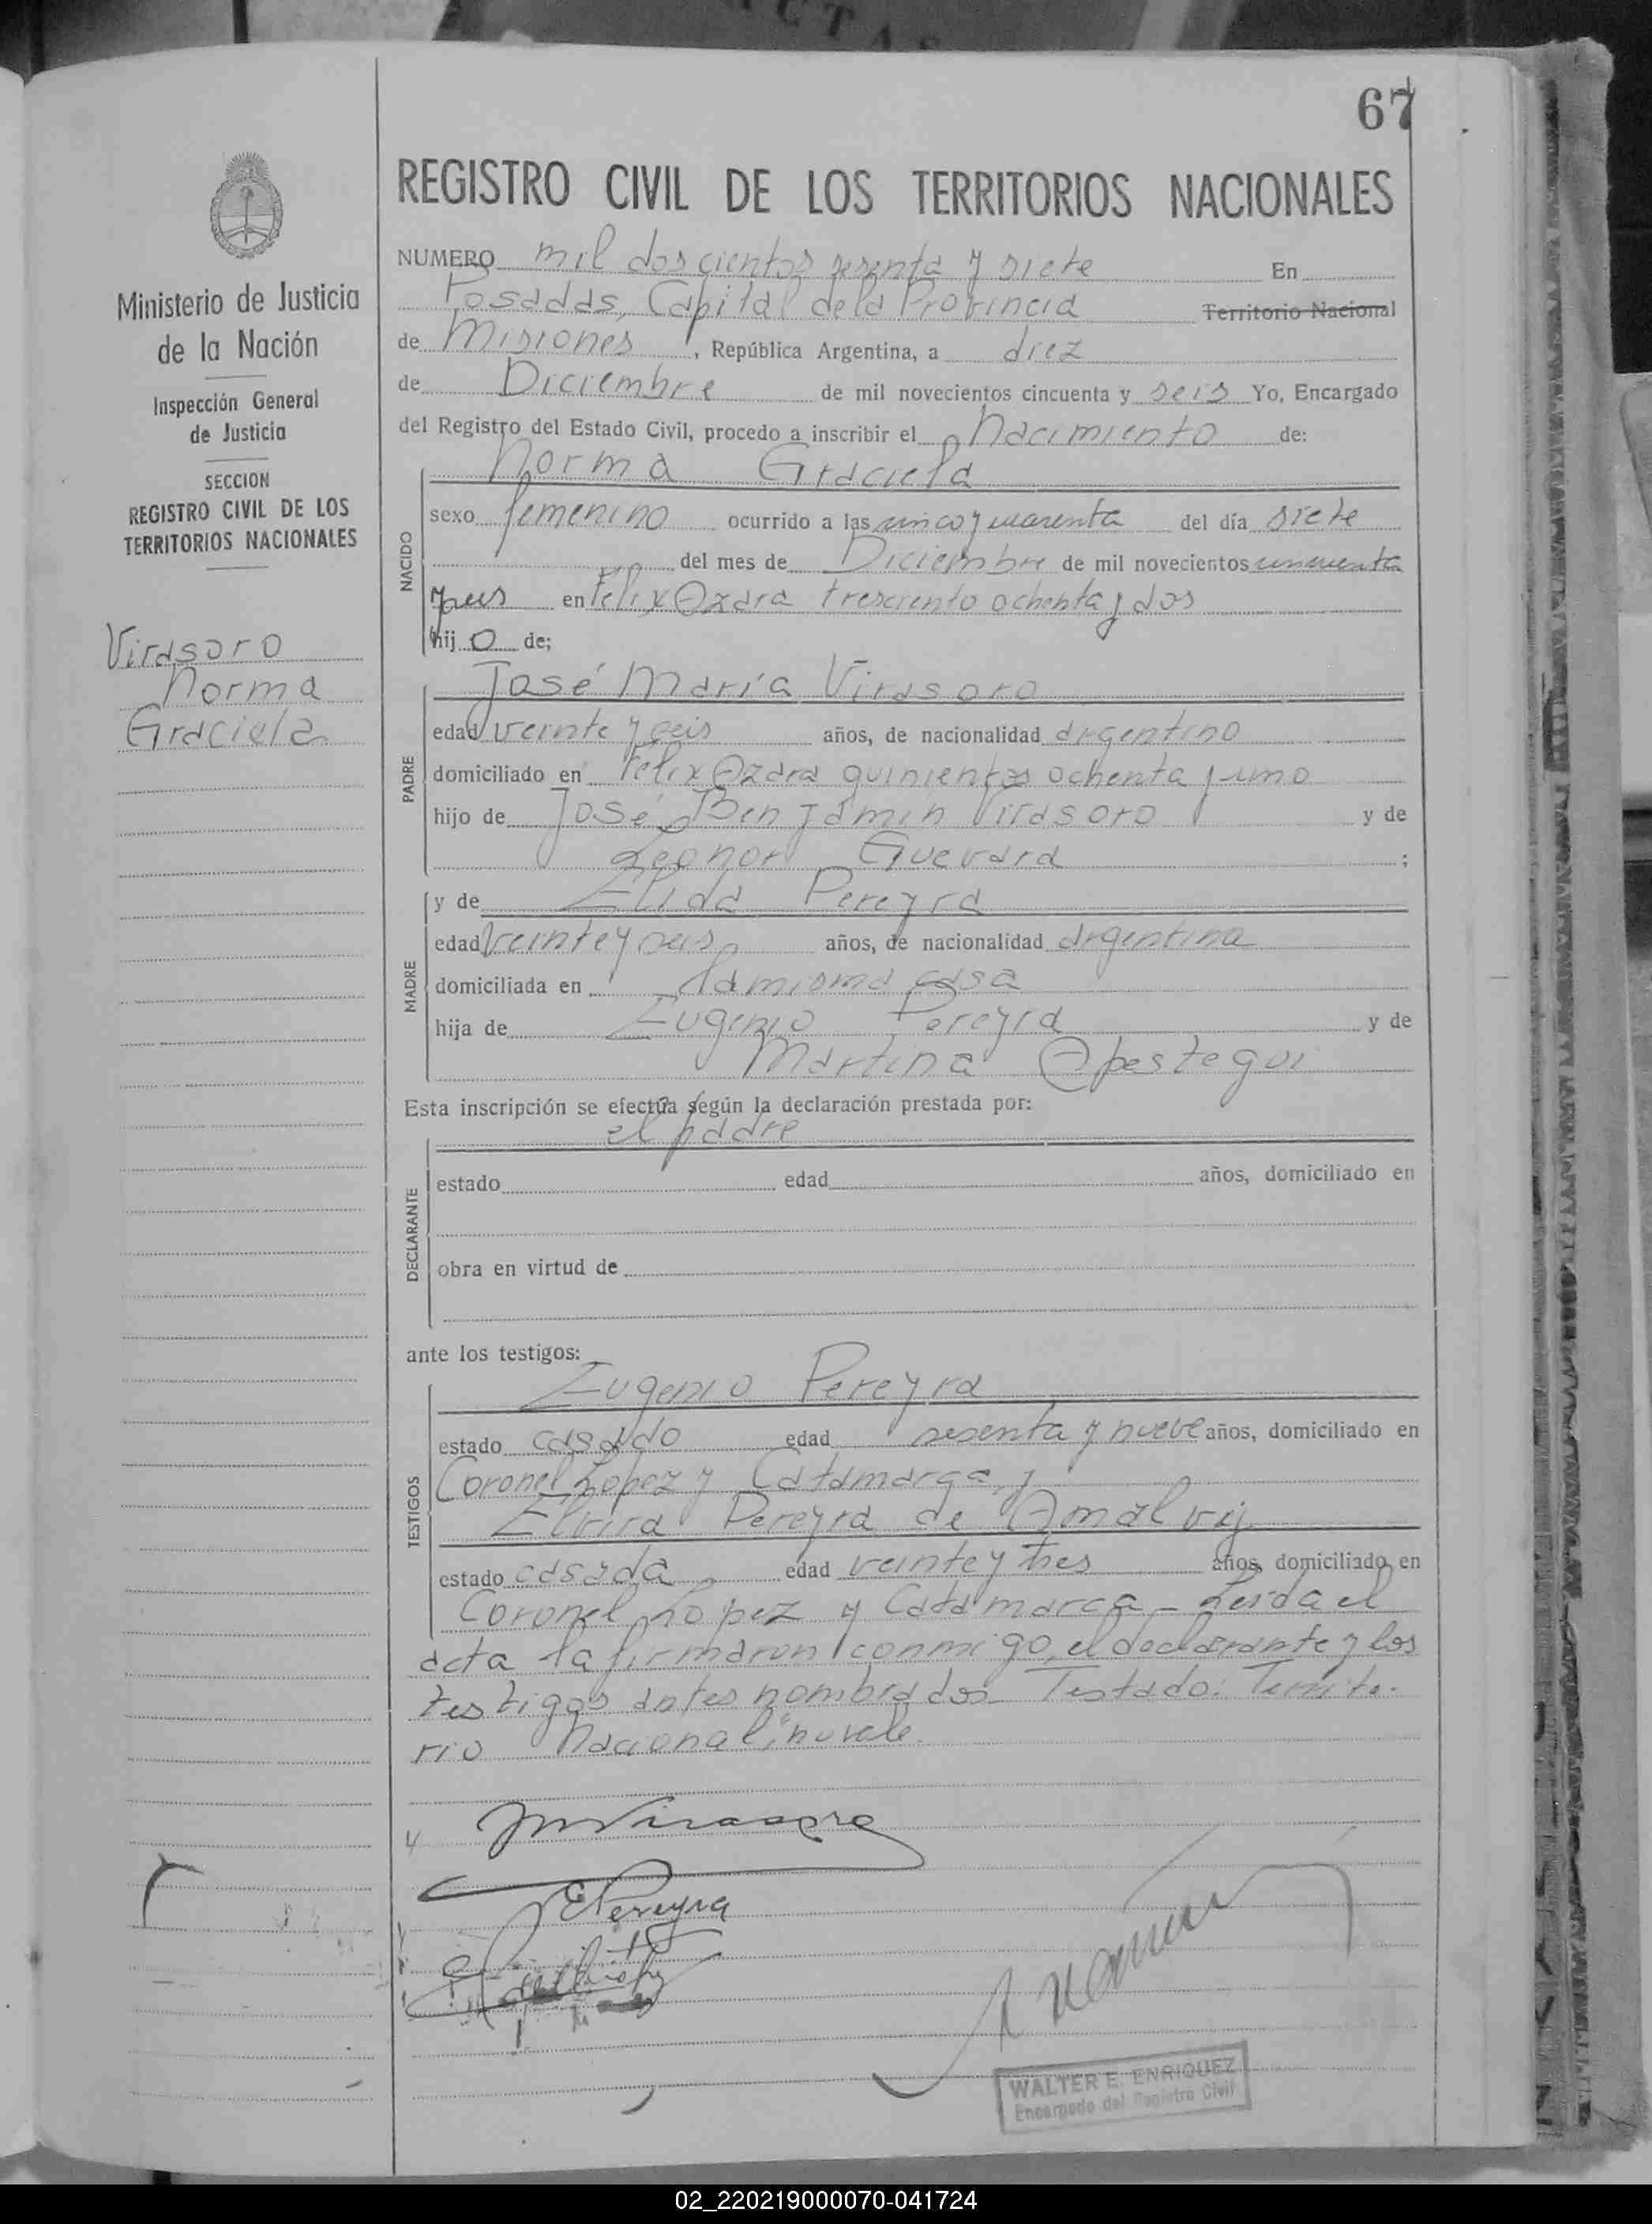 67
REGISTRO CIVIL DE LOS TERRITORIOS NACIONALES
Ministerio de Justicia
de la Nación
Inspección General
de Justicia
SECCION
REGISTRO CIVIL DE LOS
TERRITORIOS NACIONALES
Virasoro
Norma
Graciela
NUMERO mil doscientos sesenta y siete En
Posadas, Capital de la Provincia Territorio Nacional
de Misiones, República Argentina, a diez
de Diciembre de mil novecientos cincuenta y seis Yo, Encargado
del Registro del Estado Civil, procedo a inscribir el Nacimiento de:
Norma Graciela
NACIDO
sexo femenino ocurrido a las cinco y cuarenta del día siete
del mes de Diciembre de mil novecientos cincuenta
y seis en Felix Azara tresciento ochenta y dos
hij o de;
José María Virasoro
PADRE
edad veinte y seis años, de nacionalidad argentino
domiciliado en Felix Azara quinientos ochenta y uno
hijo de José Benjamin Virasoro y de
Leonor Guevara ;
y de Elida Pereyra
MADRE
edad veinte y seis años, de nacionalidad argentina
domiciliada en la misma casa
hija de Eugenio Pereyra y de
Martina Apestegui
Esta inscripción se efectúa según la declaración prestada por:
el padre
DECLARANTE
estado edad años, domiciliado en
obra en virtud de
ante los testigos:
Eugenio Pereyra
TESTIGOS
estado casado edad sesenta y nueve años, domiciliado en
Coronel Lopez y Catamarca, y
Elvira Pereyra de
estado casada edad veinte y tres años, domiciliado en
Coronel Lopez y Catamarca - Leida el
acta la firmaron conmigo, el declarante y los
testigos antes nombrados - Testado: Territo-
rio Nacional", no vale.
JM Virasoro
E Pereyra
WALTER E. ENRIQUEZ
Encargado del Registro Civil
02_220219000070-041724